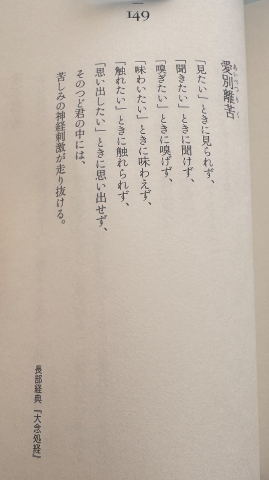 149
愛別離苦
あいべつりく
「見たい」ときに見られず、
「聞きたい」ときに聞けず、
「嗅ぎたい」ときに嗅げず、
「味わいたい」ときに味わえず、
「触れたい」ときに触れられず、
「思い出したい」ときに思い出せず、
そのつど君の中には、
苦しみの神経刺激が走り抜ける。
長部経典『大念処経』